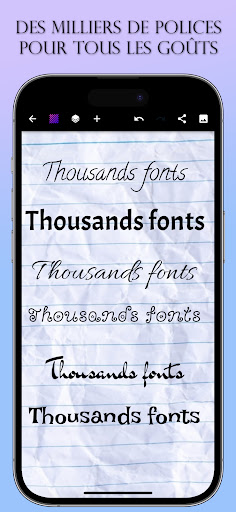 DES MILLIERS DE POLICES
POUR TOUS LES GOÛTS
Thousands fonts
Thousands fonts
Thousands fonts
Thousands fonts
Thousands fonts
Thousands fonts